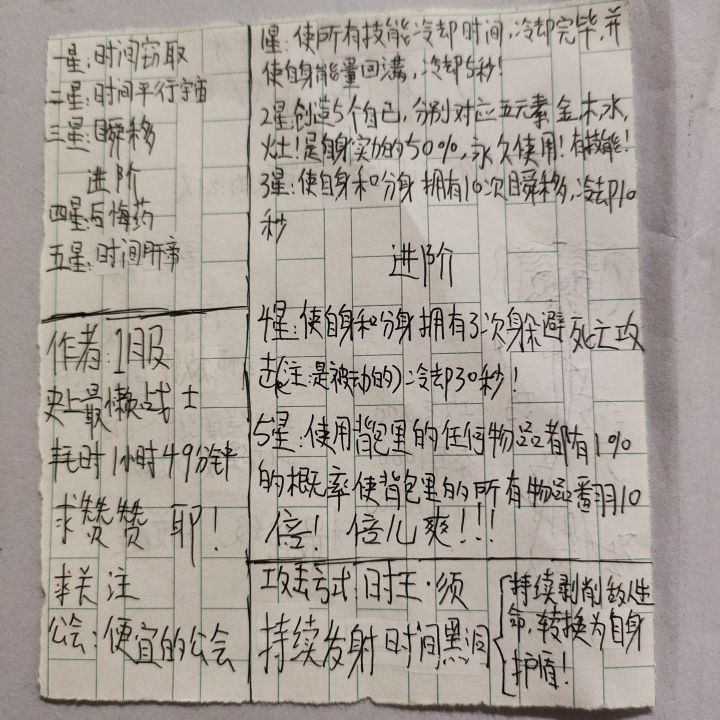 一星:时间窃取
二星:时间平行宇宙
三星:瞬移
进阶
四星:与悔药
五星:时间肝帝
作者:1服
史上最懒战士
耗时1小时49分钟
求赞赞 耶!
求关注
公会:便宜的公会
1星:使所有技能冷却时间,冷却完毕,并
使自身能量回满,冷却5秒!
2星:创造5个自己,分别对应五元素 金、木、水,
火土!是自身实力的50%,永久使用!有技能!
3星:使自身和分身拥有10次瞬移,冷却10
秒
进阶
4星:使自身和分身拥有3次身躲避死亡攻
击(注:是被动的)冷却30秒!
5星:使用背包里的任何物品都有1%
的概率使背包里的所有物品翻10
倍!倍儿爽!!!
攻击方式:时王·须
持续发射时间黑洞
持续剥削敌人生
命,转换为自身
护盾!